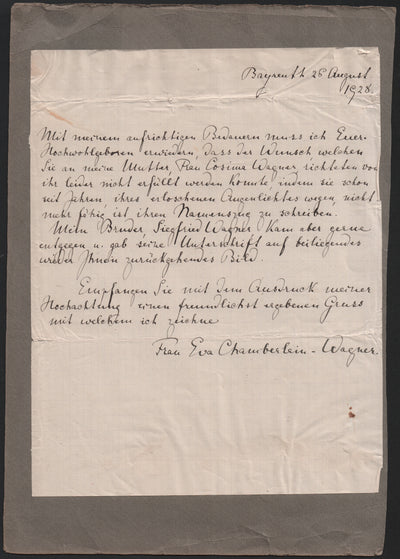 Bayreuth 26 August
1928.
Mit meinem aufrichtigen Bedauern muss ich Euer-
Hochwohlgeboren erwiedern, dass der Wunsch welchen
Sie an meine Mutter, Frau Cosima Wagner richteten von
ihr leider nicht erfüllt werden konnte, indem sie schon
seit Jahren, ihres erloschenen Augenlichtes wegen, nicht
mehr fähig ist ihren Namenszug zu schreiben.
Mein Bruder, Siegfried Wagner kam aber gerne
entgegen u. gab seine Unterschrift auf beiliegendes
wieder Ihnen zurückgehendes Bild.
Empfangen Sie mit dem Ausdruck meiner
Hochachtung einen freundlichst ergebenen Gruss
mit welchem ich zeichne
Frau Eva Chamberlein-Wagner.